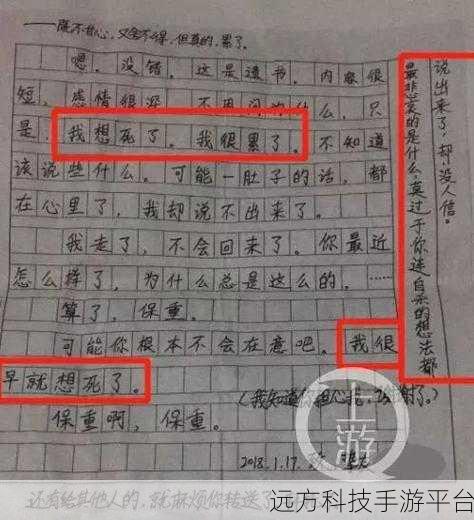 ——既不甘心,又舍不得,但真的,累了。
嗯。没错。这是遗书。内容很
短,感情很深。不用问为什么,只
是,我想死了。我很累了。不知道
该说些什么。可能一肚子的话,都
在心里了,我却说不出来了。
我走了,不会回来了。你最近
怎么样了,为什么总是这么的,……
算了,保重。
可能你根本不会在意吧。我很
早就想死了。
(我知道你担心
谢了。)
保重啊,保重。
2018.1.17.
最悲哀的是什么,莫过于你连自杀的想法都
说出来了,却没人信。
上游
还有给其他人的,就麻烦你转送了
远方科技手游平台